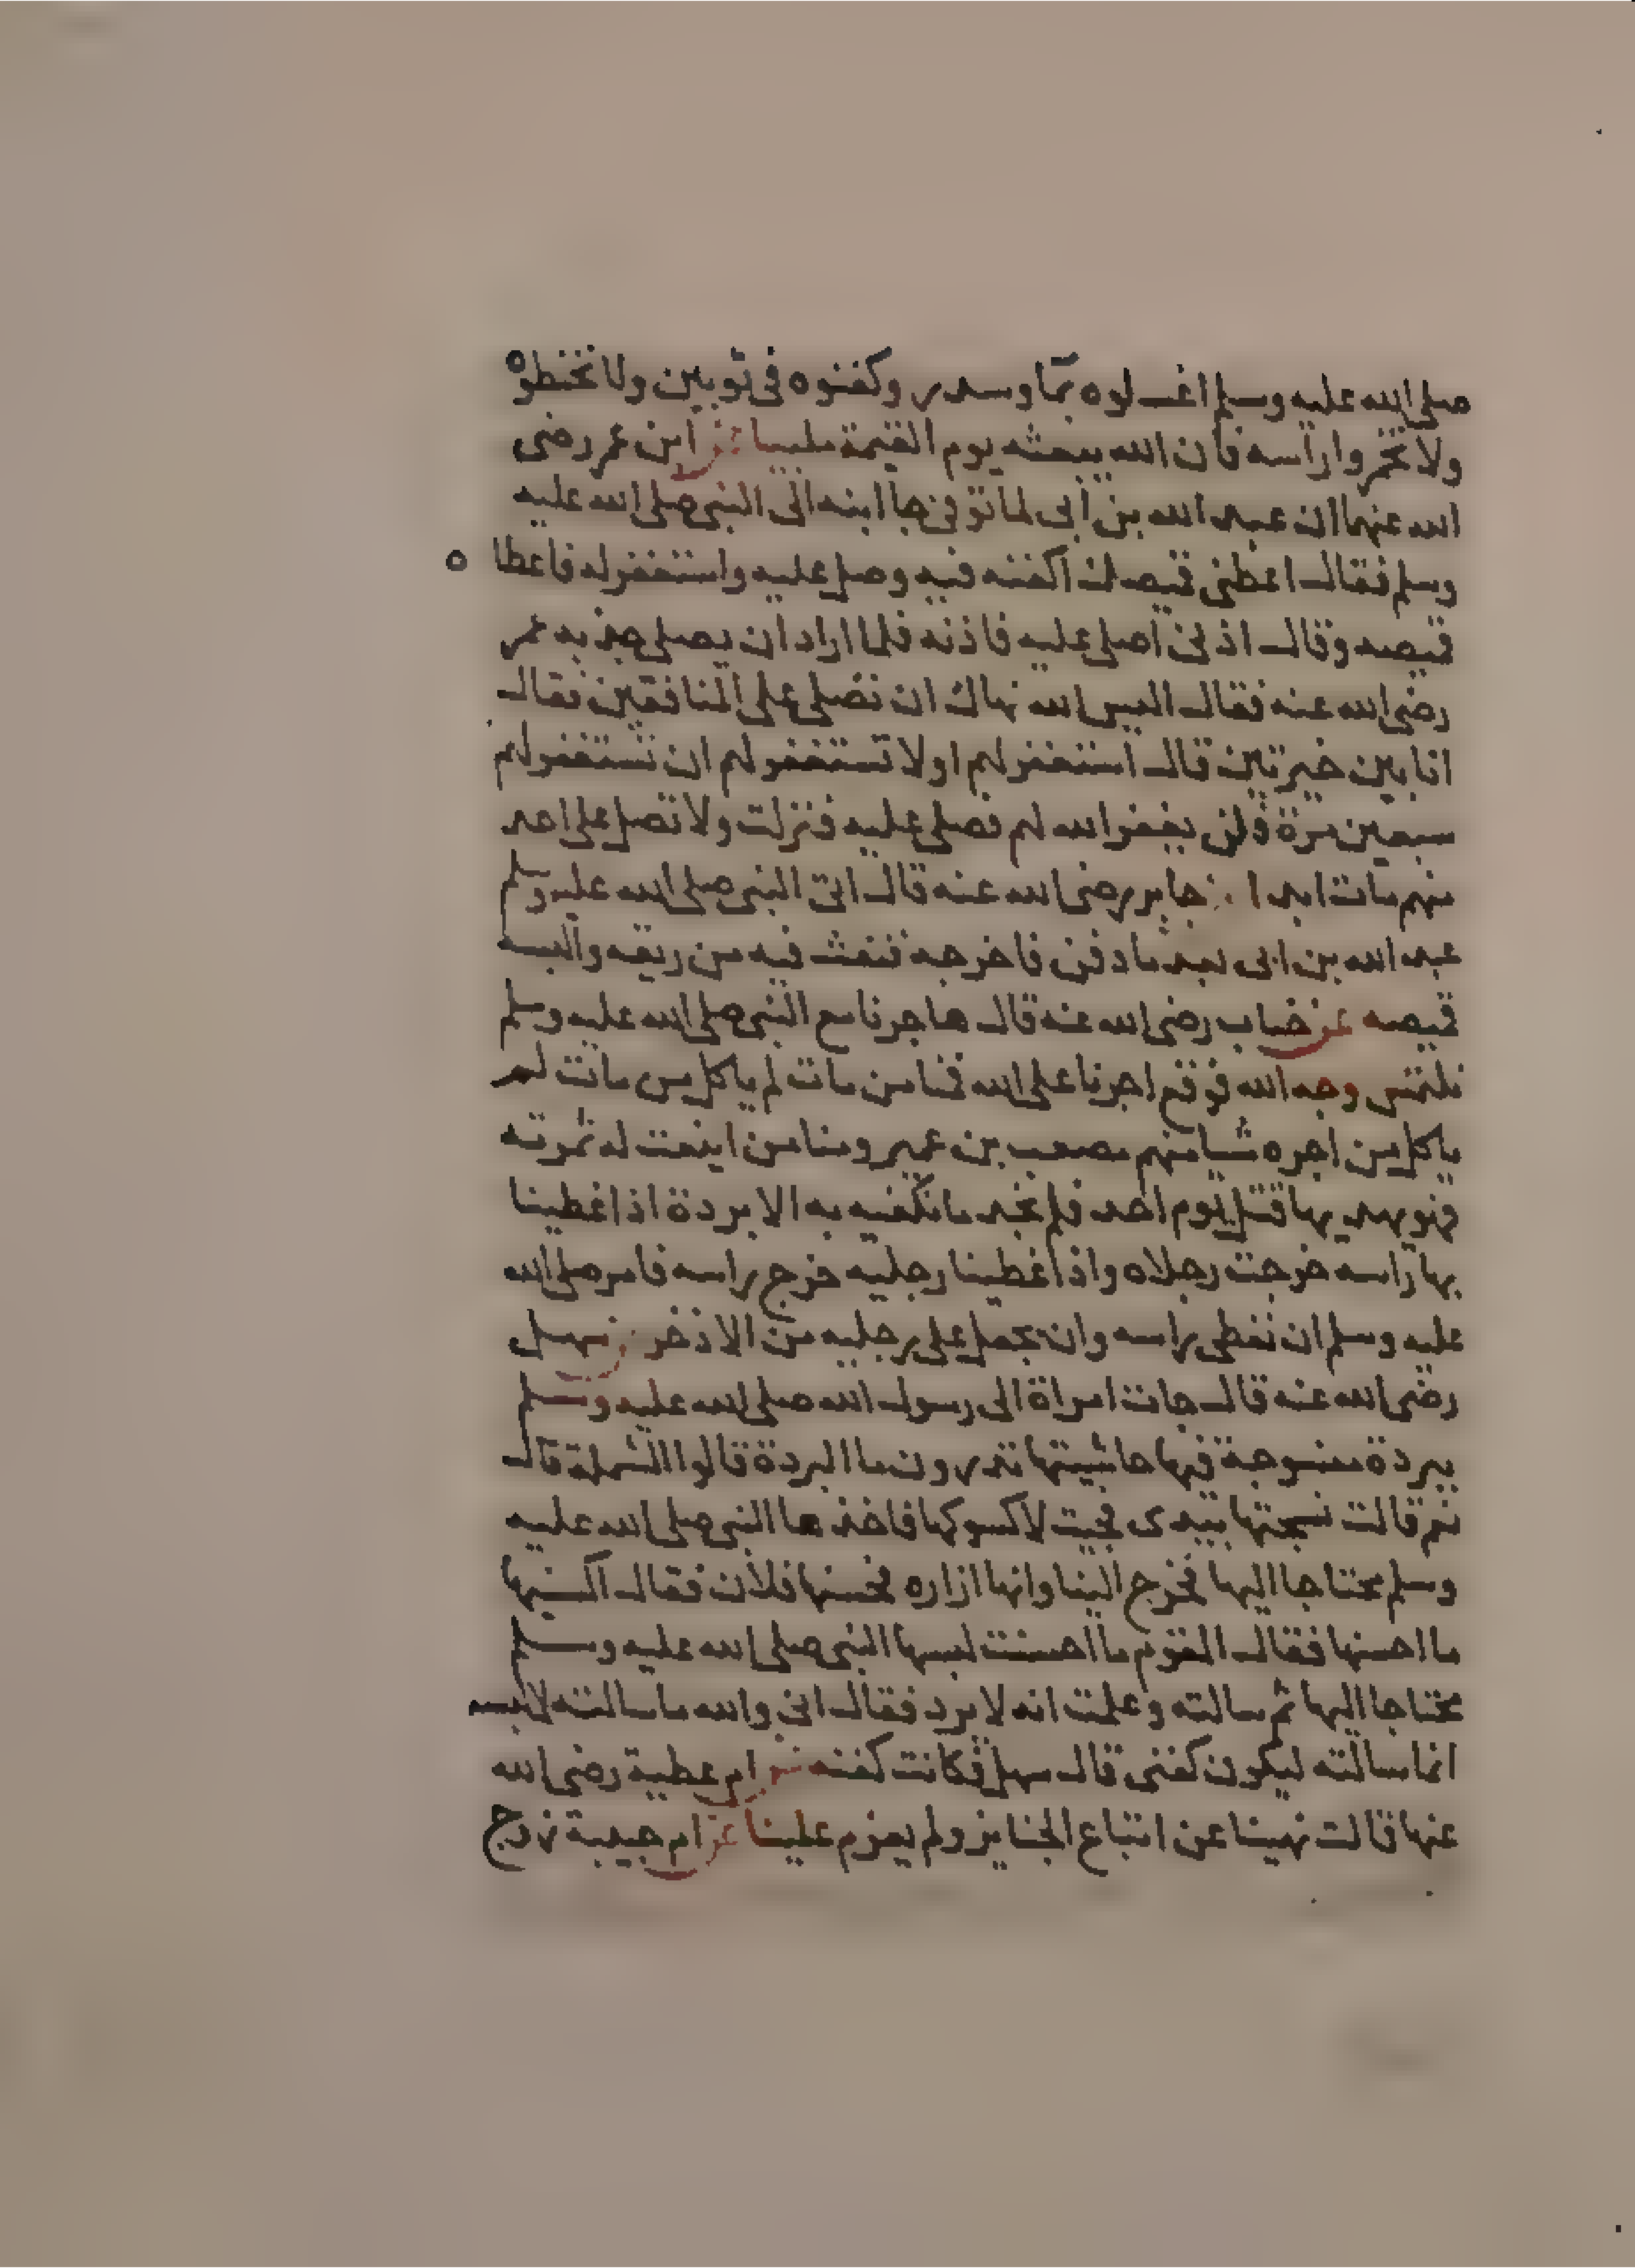 صلى الله عليه وسلم اغسلوه بما وسدر وكفنوه فى ثوبين ولا تحنطوه
ولا تخمروا راسه فان الله يبعثه يوم القيمة ملبيا عن ابن عمر رضى
الله عنهما ان عبد الله بن ابى لما توفى جا ابنه الى النبى صلى الله عليه
وسلم فقال اعطنى قميصك اكفنه فيه وصل عليه واستغفر له فاعطا ه
قميصه وقال اذنى اصلى عليه فاذنه فلما اراد ان يصلى جذبه عمر
رضى الله عنه فقال اليس الله نهاك ان تصلى على المنافقين فقال
انا بين خيرتين قال استغفر لهم او لا تستغفر لهم ان تستغفر لهم
سبعين مرة فلن يغفر الله لهم فصلى عليه فنزلت ولا تصل على احد
منهم مات ابدا جابر رضى الله عنه قال اتى النبى صلى الله عليه وسلم
عبد الله بن ابى بعد ما دفن فاخرجه فنفث فيه من ريقه والبسه
قميصه عن خباب رضى الله عنه قال هاجرنا مع النبى صلى الله عليه وسلم
نلتمس وجه الله فوقع اجرنا على الله فمنا من مات لم ياكل من مات لم
ياكل من اجره شيا منهم مصعب بن عمير ومنا من اينعت له ثمرته
فهو يهدبها قتل يوم احد فلم نجد ما نكفنه به الا بردة اذا غطينا
بها راسه خرجت رجلاه واذا غطينا رجليه خرج راسه فامر صلى الله
عليه وسلم ان نغطى راسه وان نجعل على رجليه من الاذخر عن سهل
رضى الله عنه قال جات امراة الى رسول الله صلى الله عليه وسلم
ببردة منسوجة فيها حاشيتها تدرون ما البردة قالوا الشملة قال
نعم قالت نسجتها بيدى فجيت لاكسوكها فاخذها النبى صلى الله عليه
وسلم محتاجا اليها فخرج الينا وانها ازاره فحسنها فلان فقال اكسنيها
ما احسنها فقال القوم ما احسنت لبسها النبى صلى الله عليه وسلم
محتاجا اليها ثم سالته وعلمت انه لا يرد فقال انى والله ما سالته لالبسه
انما سالته ليكون كفنى قال سهل فكانت كفنه عن ام عطية رضى الله
عنها قالت نهينا عن اتباع الجنايز ولم يعزم علينا عن ام حبيبة زوج